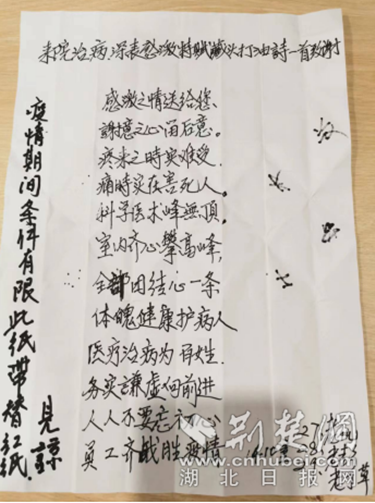 来院治病,深表感激特赋藏头打油詩一首致谢
感激之情送给您
謝意之心留后意。
疼来之時实难受.
痛時实在害死人。
科学医术峰無顶,
室内齐心攀高峰,
全部团结心一条
体魄健康护病人
医疗治病为再生.
务实谦虚向前进
人人不要忘初心
员工齐战胜疫情
疫情期间条件有限此纸带替红纸.
見諒
荆楚網
www.cnhubei.com
湖北日报网